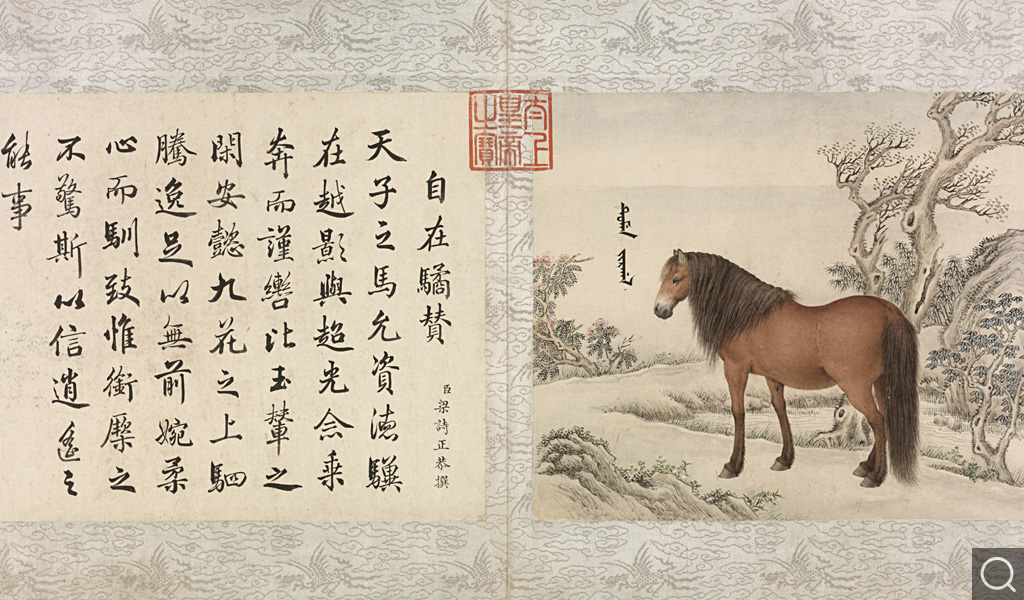 太上
皇帝
之寶
自在驈賛
臣梁詩正恭撰
天子之馬允資徳驥
在越影與超光念乗
奔而謹轡比玉輦之
閑安懿九花之上駟
騰逸足以無前婉柔
心而馴致惟銜橜之
不驚斯以信逍遙之
能事